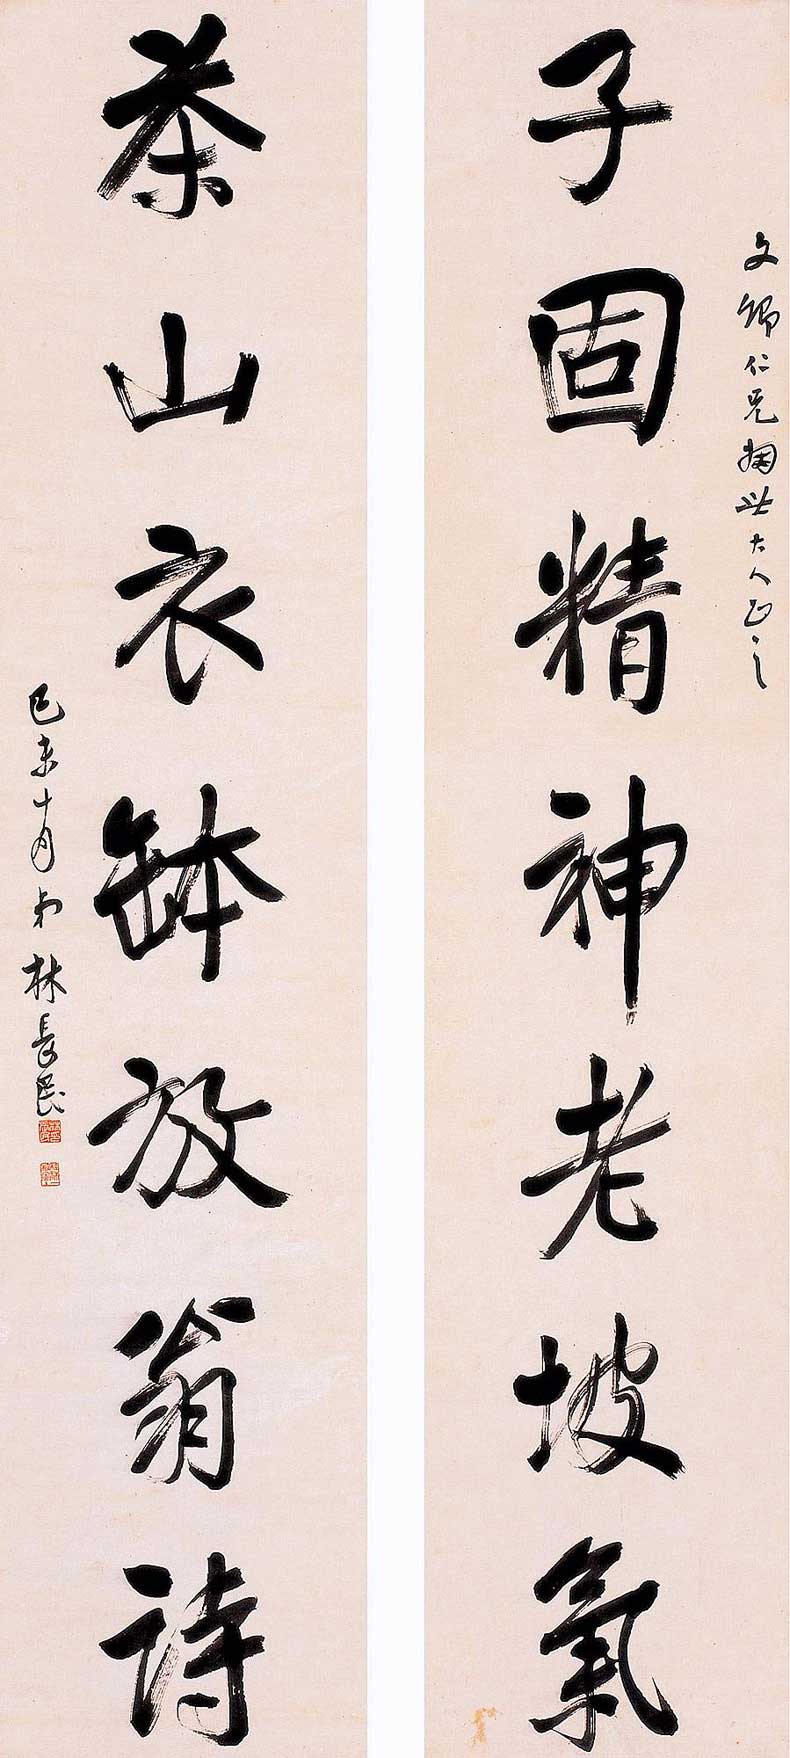 文卿仁兄掬世大人正之
子固精神老坡氣
茶山衣缽放翁詩
己未十月弟林長民